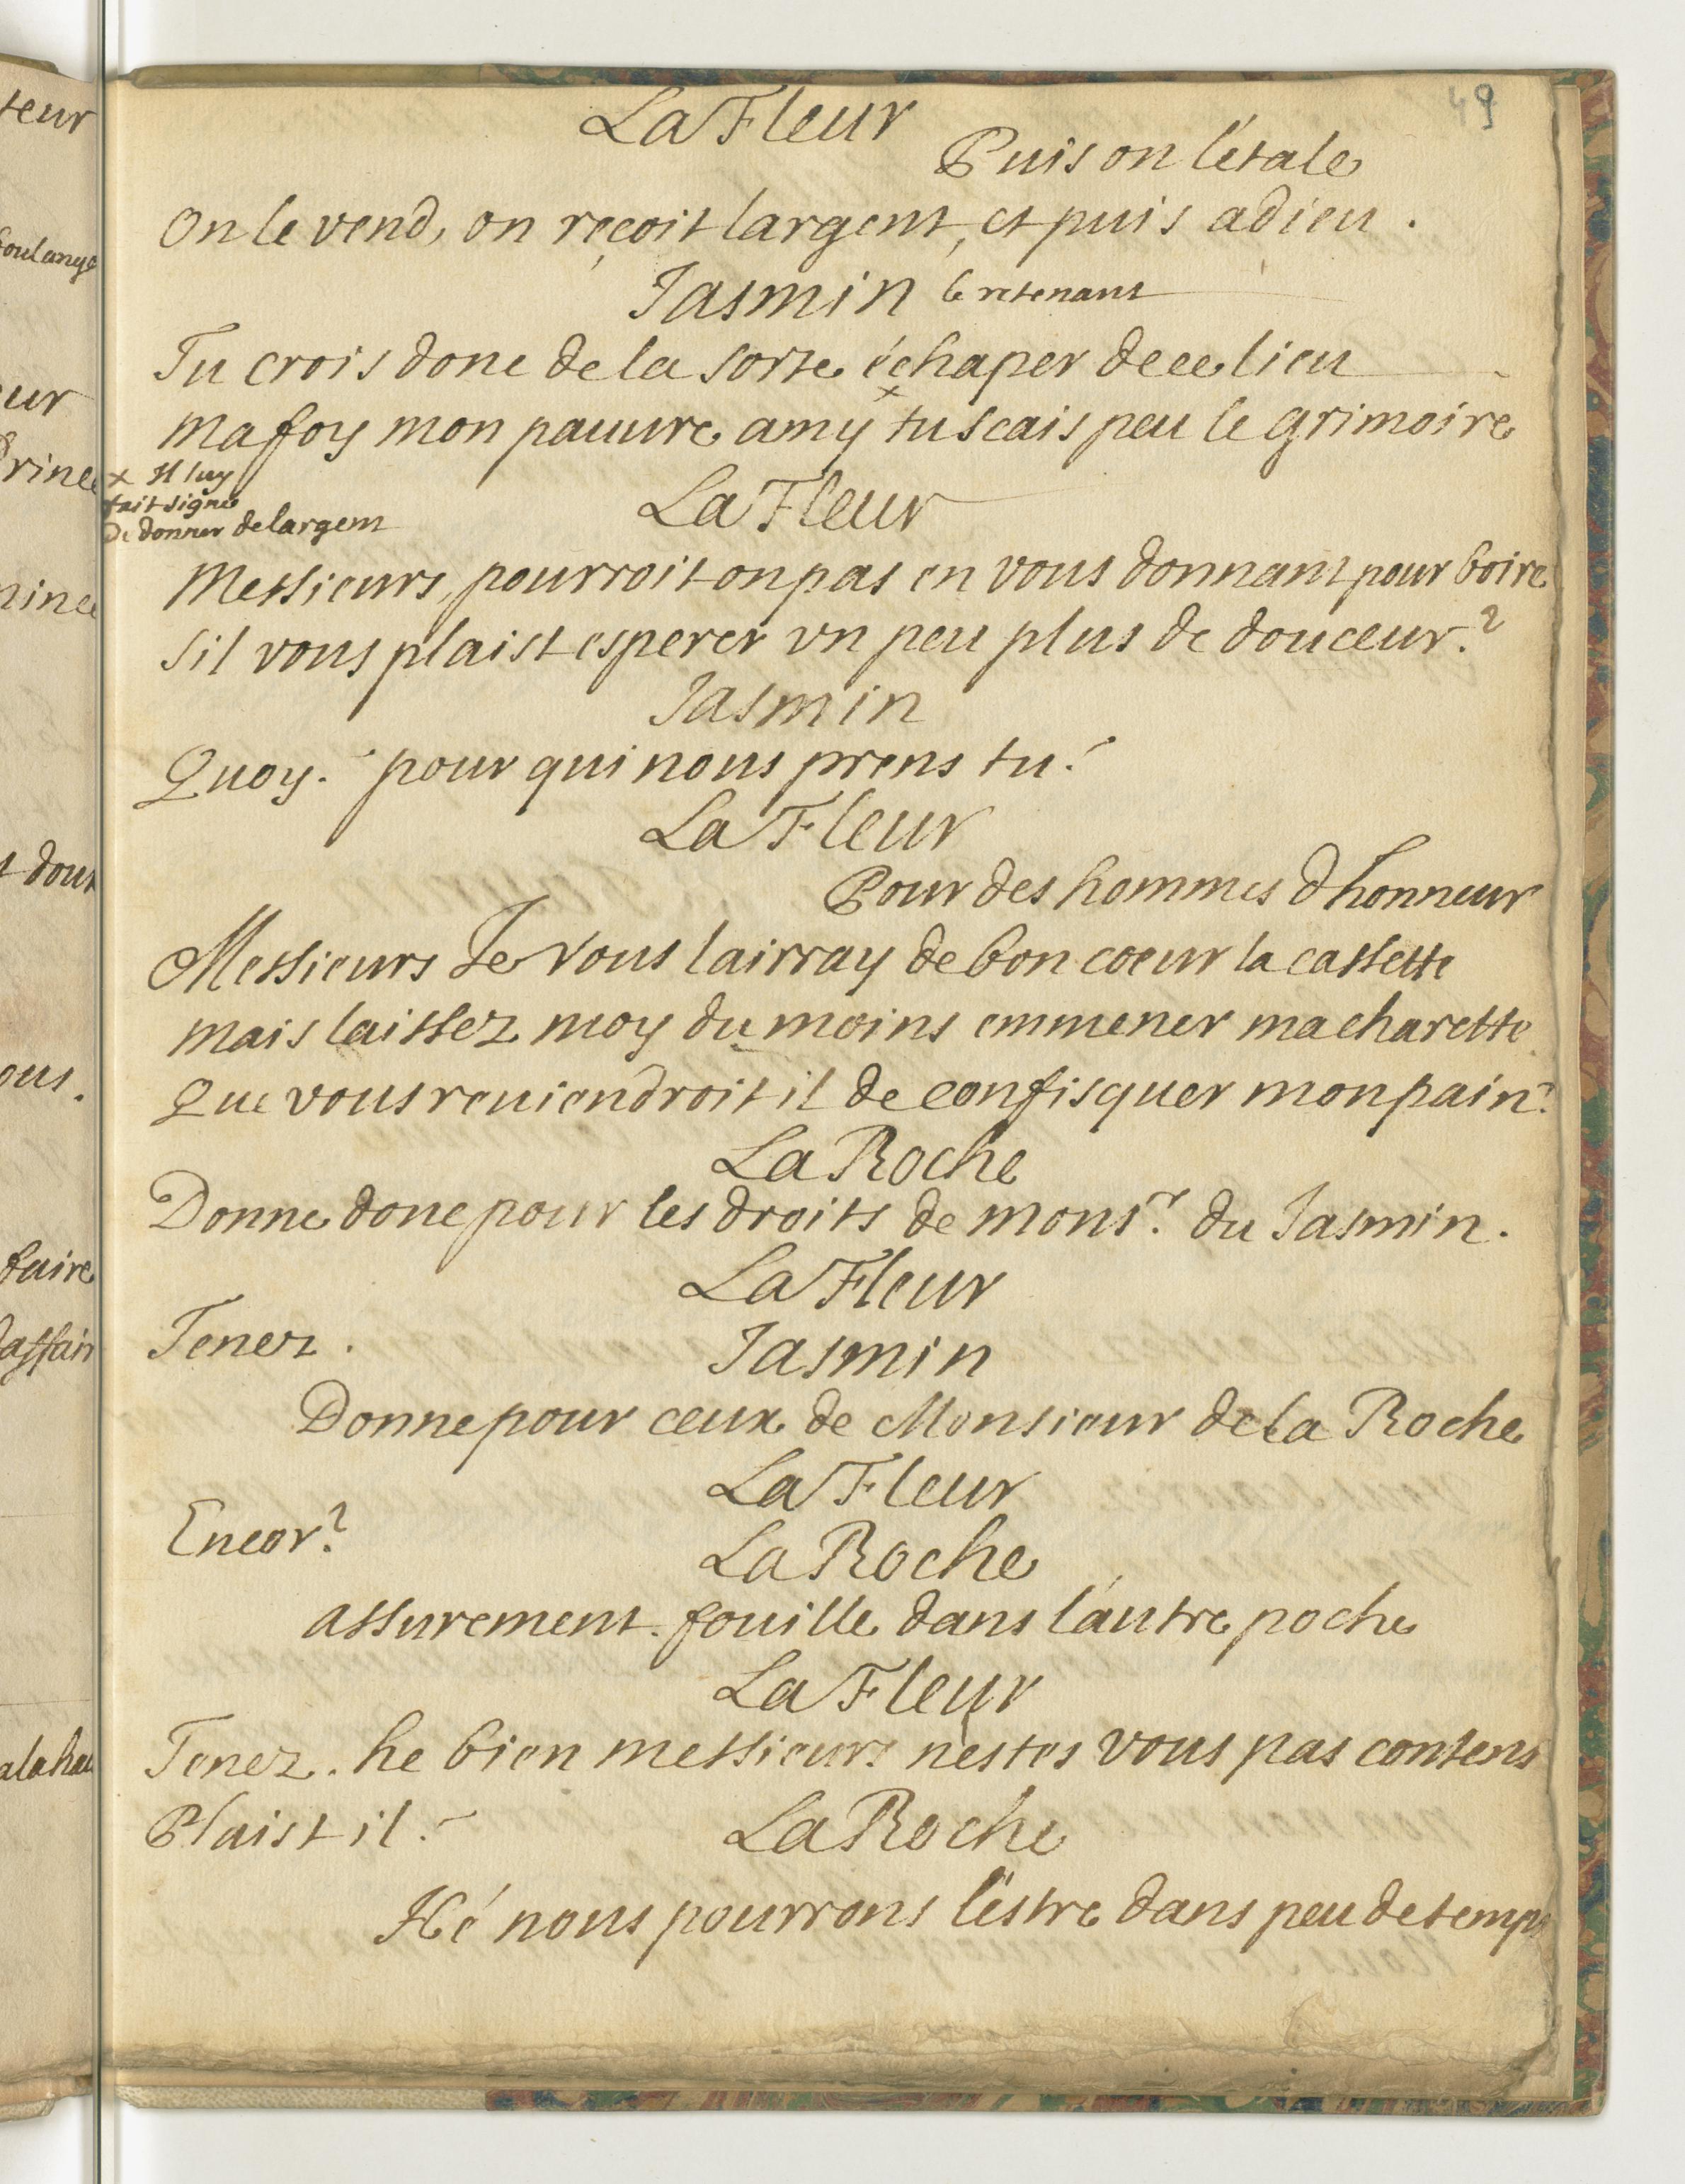 49
La Fleur
Puis on l'étale
On le vend, on reçoit largent, et puis adieu.
Jasmin le retenant
Tu crois donc de la sorte échaper de ce lieu
ma foy mon pauure amy + tu scais peu le grimoire
+ Il luy
fait signe
De donner de largent
La Fleur
Messieurs, pourroit on pas en vous donnant pour boire
sil vous plaist esperer vn peu plus de douceur?
Jasmin
Quoy. pour qui nous prens tu?
La Fleur
Pour des hommes dhonneur
Messieurs Je vous lairray de bon coeur la cassette
mais laissez moy du moins emmener ma charette
Que vous reuiendroit il de confisquer mon pain?
La Roche
Donne donc pour les droits de monsr. du Jasmin.
La Fleur
Tenez.
Jasmin
Donne pour ceux de Monsieur de la Roche
La Fleur
Encor?
La Roche
assurement. fouille dans l'autre poche
La Fleur
Tenez. he bien messieurs n'estes vous pas contens
Plaist il?
La Roche
Hé nous pourrons l'estre dans peu de temps
teur
boulange
eur
Prince
t dont
ous.
faire